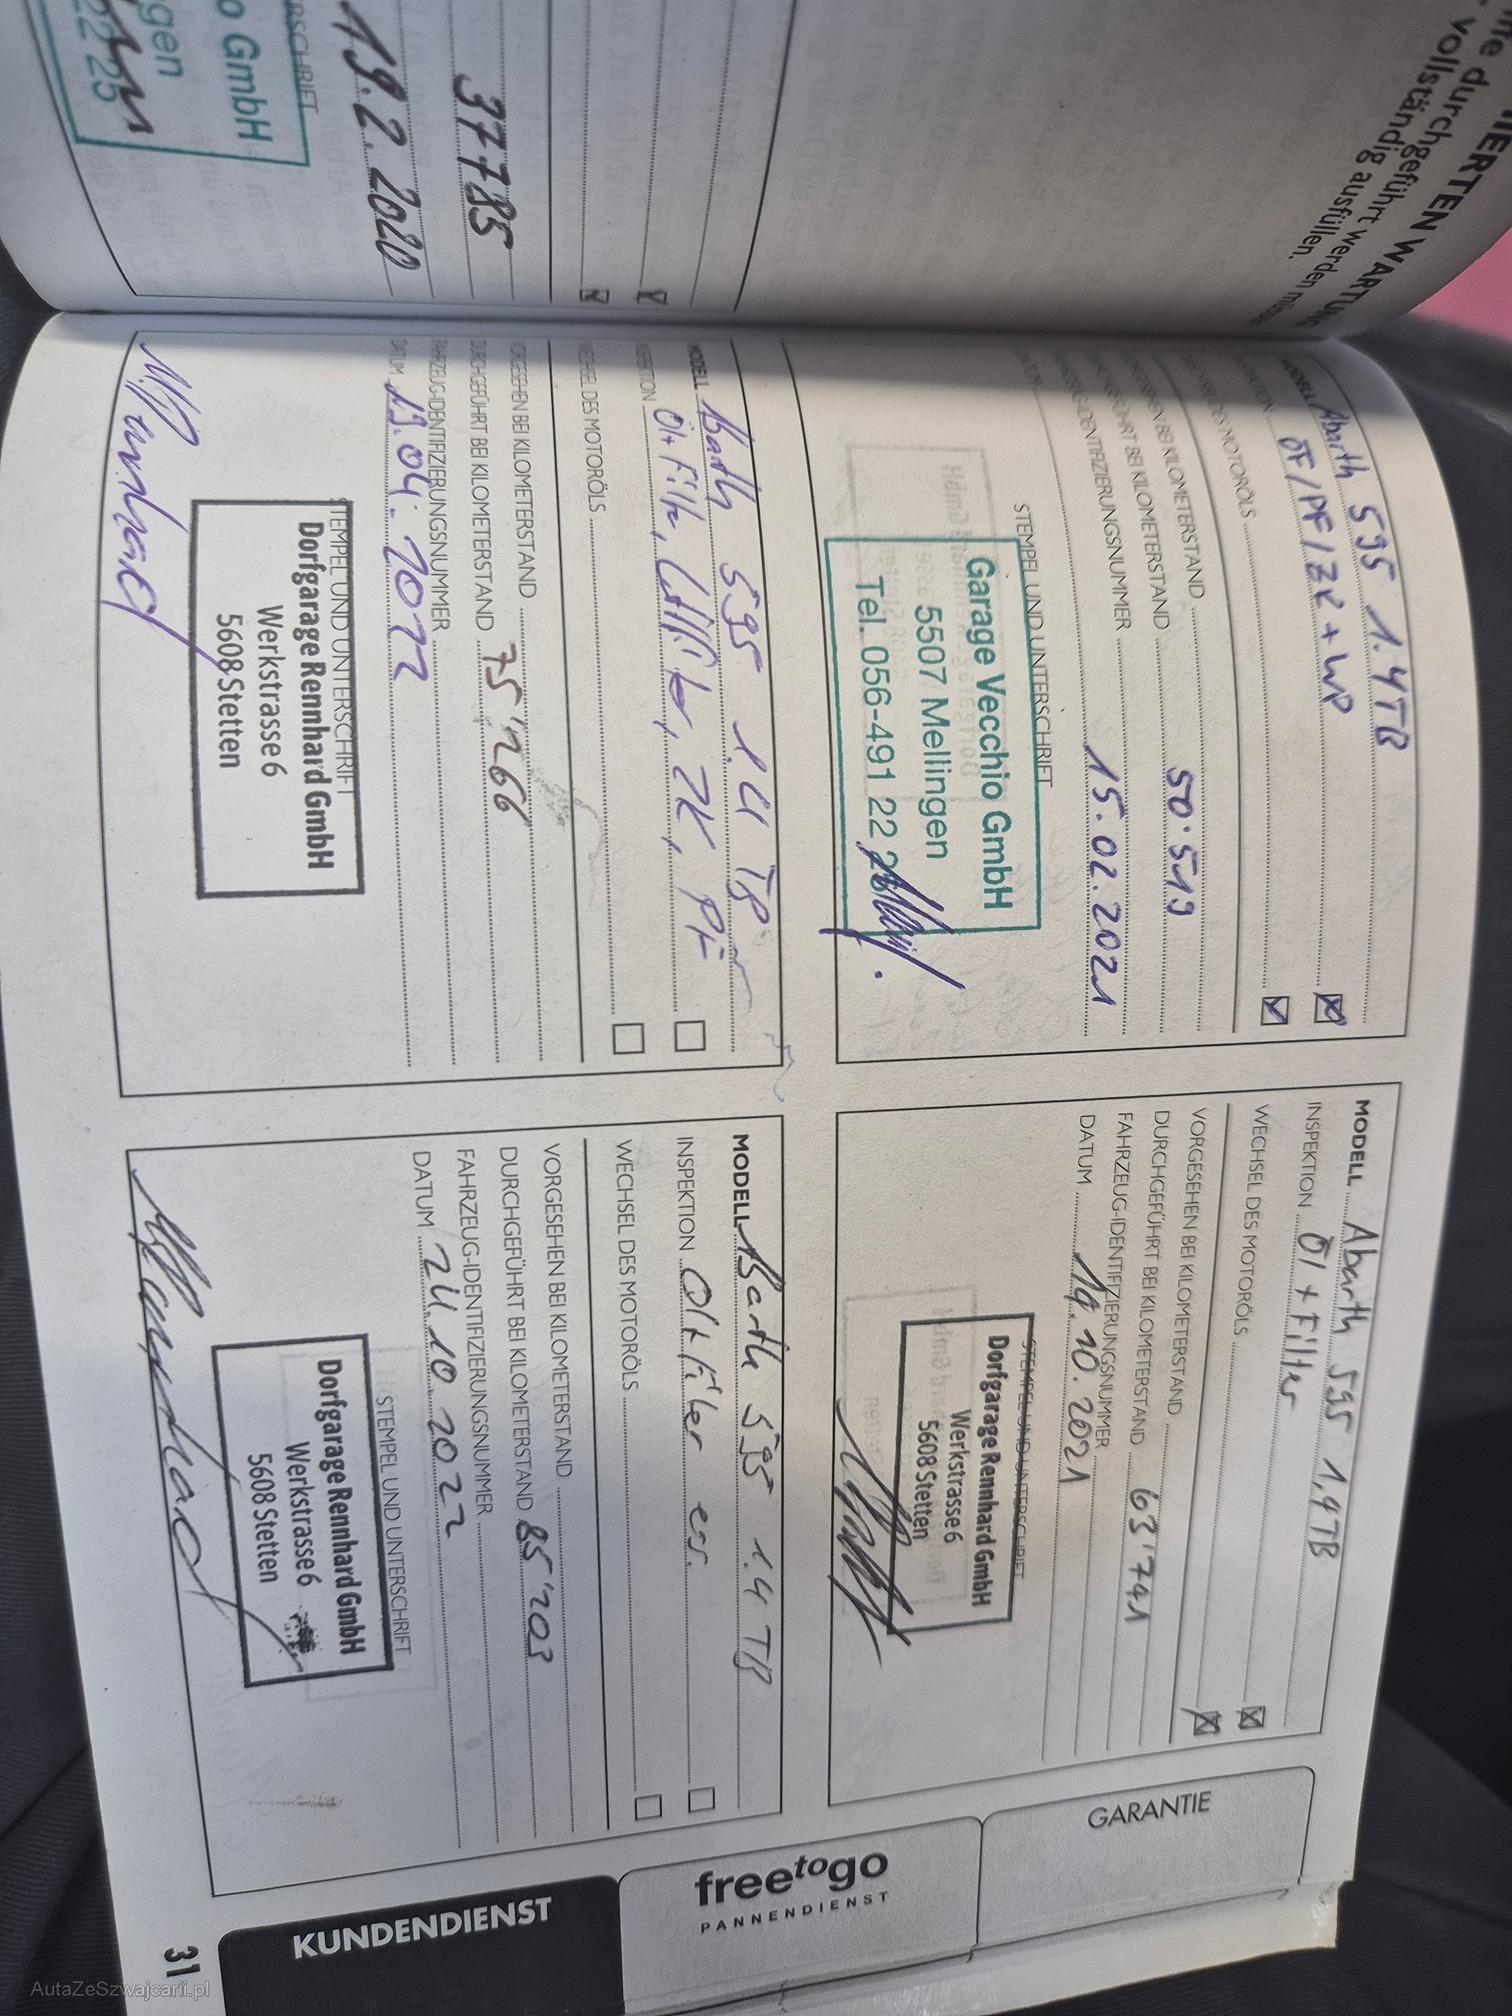 MIERTEN WARTUNG
durchgeführt werden
vollständig ausfüllen.
37785
19.2.2020
o GmbH
gen
22 25
MODELL Abarth 595 1.4TB
ÖF/PF/ZK + WP
WECHSEL DES MOTORÖLS
VORGESEHEN BEI KILOMETERSTAND
DURCHGEFÜHRT BEI KILOMETERSTAND 50'519
FAHRZEUG-IDENTIFIZIERUNGSNUMMER
15.02.2021
STEMPEL UND UNTERSCHRIFT
Garage Vecchio GmbH
5507 Mellingen
Tel. 056-491 22
MODELL Abarth 595 1,4TB
INSPEKTION Öl + Filter
WECHSEL DES MOTORÖLS
VORGESEHEN BEI KILOMETERSTAND
DURCHGEFÜHRT BEI KILOMETERSTAND 63'741
FAHRZEUG-IDENTIFIZIERUNGSNUMMER
DATUM 19.10.2021
STEMPEL UND UNTERSCHRIFT
Dorfgarage Rennhard GmbH
Werkstrasse 6
5608 Stetten
MODELL Abarth 595 1.4 TB
INSPEKTION Öl+Filter, Luftfilter, ZK, PF
WECHSEL DES MOTORÖLS
VORGESEHEN BEI KILOMETERSTAND
DURCHGEFÜHRT BEI KILOMETERSTAND 75'266
FAHRZEUG-IDENTIFIZIERUNGSNUMMER
DATUM 19.04.2022
STEMPEL UND UNTERSCHRIFT
Dorfgarage Rennhard GmbH
Werkstrasse 6
5608 Stetten
MODELL Abarth 595 1.4 TB
INSPEKTION Öl+Filter ers.
WECHSEL DES MOTORÖLS
VORGESEHEN BEI KILOMETERSTAND
DURCHGEFÜHRT BEI KILOMETERSTAND 85'203
FAHRZEUG-IDENTIFIZIERUNGSNUMMER
DATUM 24.10.2022
STEMPEL UND UNTERSCHRIFT
Dorfgarage Rennhard GmbH
Werkstrasse 6
5608 Stetten
GARANTIE
freetogo
PANNENDIENST
KUNDENDIENST
31
AutaZeSzwajcarii.pl